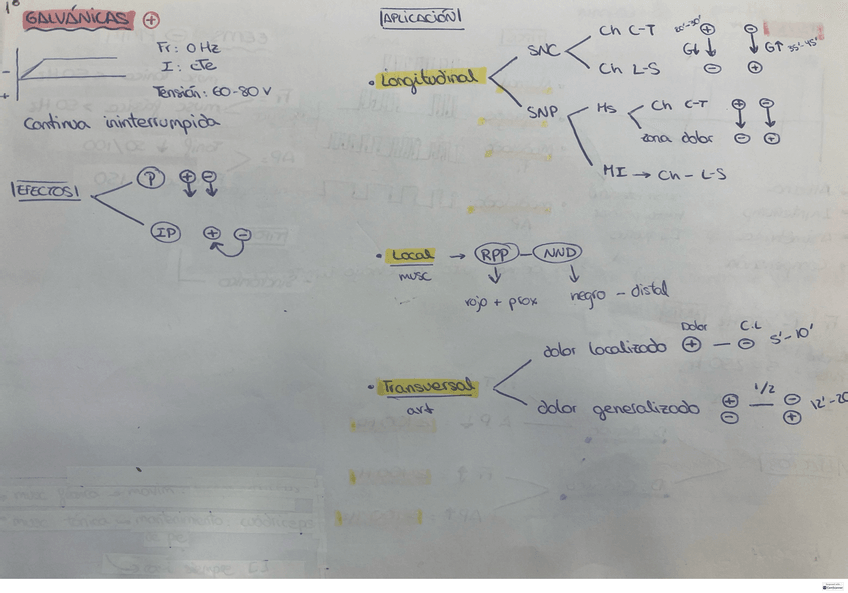 1º
GALVÁNICAS +
Fr: 0 Hz
I: cTe
Tensión: 60-80 V
- 
+
Continua ininterrumpida
|EFECTOS|
P + -
IP + -
|APLICACIÓN|
• Longitudinal
SNC
Ch C-T
Ch L-S
+ G↓ -
- G↑ +
35'-45'
SNP
Hs
Ch C-T + -
zona dolor - +
MI → Ch - L-S
• Local → RPP - NND
musc
rojo + prox
negro - distal
• Transversal
art
Dolor C.L
dolor localizado + — - 5'-10'
1/2
dolor generalizado + — - 12'-20
- +